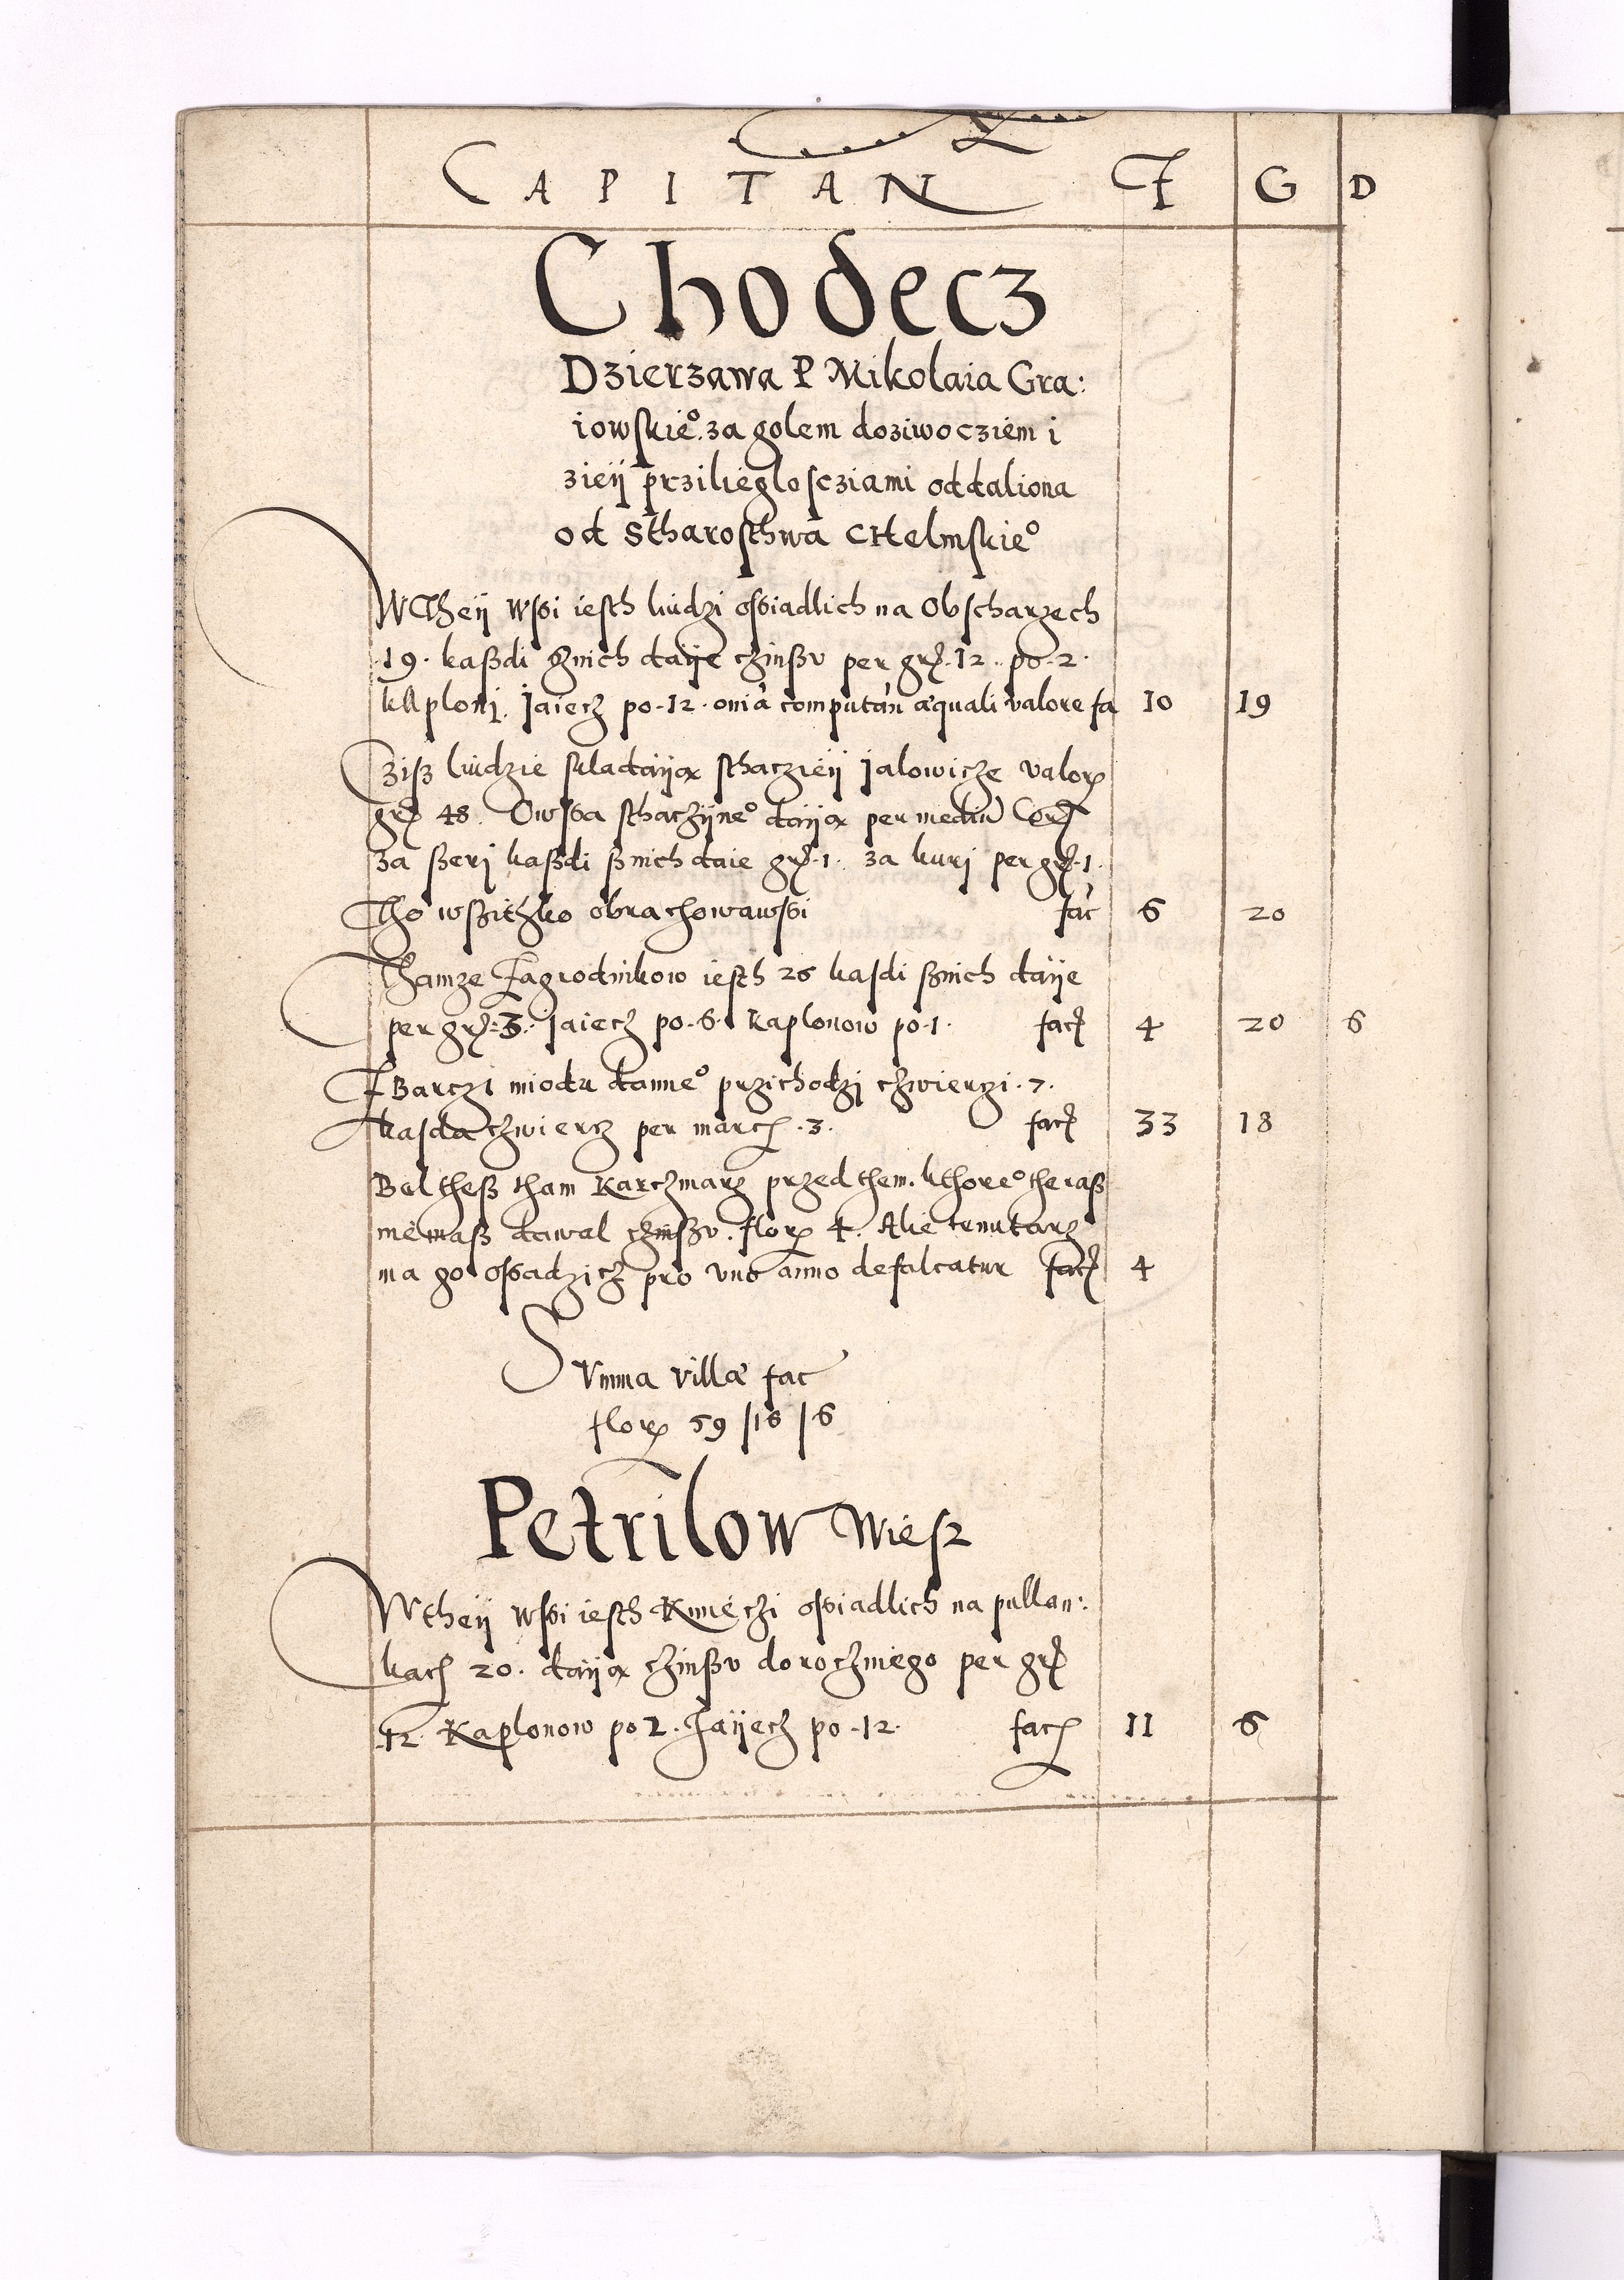 CAPITAN F G D
Chodecz
Dzierzawa P Mikolaia Gra:
iowskieº. za golem doziwocziem i
zieÿ prziliegloscziami oddaliona
od Stharosthwa CHelmskieº
WTheÿ wsºi iesth liudzi osºiadlich na Obscharzech
19. kaßdi ßnich daÿe czinßv per grꝭ. 12. po. 2.
kAploni. Jaiecz po. 12. omīa computān æquali valore fa 10 19
Ziß liudzie skladaÿą sthaczieÿ Jalowicze valorꝭ
grꝭ 48. Owsºa sthaczÿneº daÿą per mediū Corꝭ
za ßerj kaßdi ßnich daie grꝭ. 1. za kurj per grꝭ. 1.
Tho wßitzko obrachowawsºi fac 6 20
Thamze Zagrodnikow iesth 26 kasdi ßnich daÿe
per grꝭ. 3. Jaiecz po. 6. Kaplonow po. 1. facꝭ 4 20 6
Z Barczi miodu danneº przichodzj czwierzi. 7.
kasda czwiercz per marcꝭ. 3. facꝭ 33 18
Bel theß tham Karczmarz przed them. kthoreº theraß
niemaß dawal czinßv. florꝭ 4. Alie tenutarz
ma go osºadzicz pro vno anno defalcatur facꝭ 4
Svmma villæ fac
florꝭ 59 | 16 | 6
Petrilow Wiesz
Wtheÿ wsºi iesth Kmieczi osºiadlich na pullan:
kacꝭ 20. daÿą czinßv dorocznego per grꝭ
12. Kaplonow po 2. Jaÿecz po. 12. facꝭ 11 6